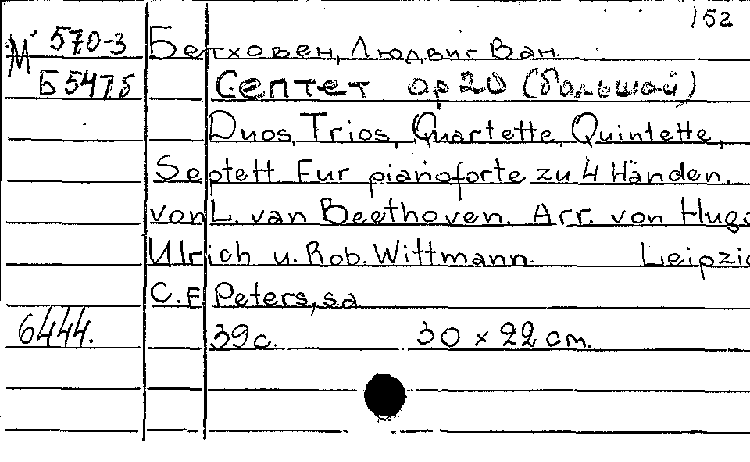 152
М 570-3 Бетховен, Людвиг Ван
Б 5475 Септет ор 20 (большой)
Duos, Trios, Quartette, Quintette,
Septett Fur pianoforte zu 4 Handen.
von L. van Beethoven. Arr. von Hugo
Ulrich u. Rob. Wittmann. Leipzig
C.F. Peters, sa
6444. 39 с. 30 x 22 cm.